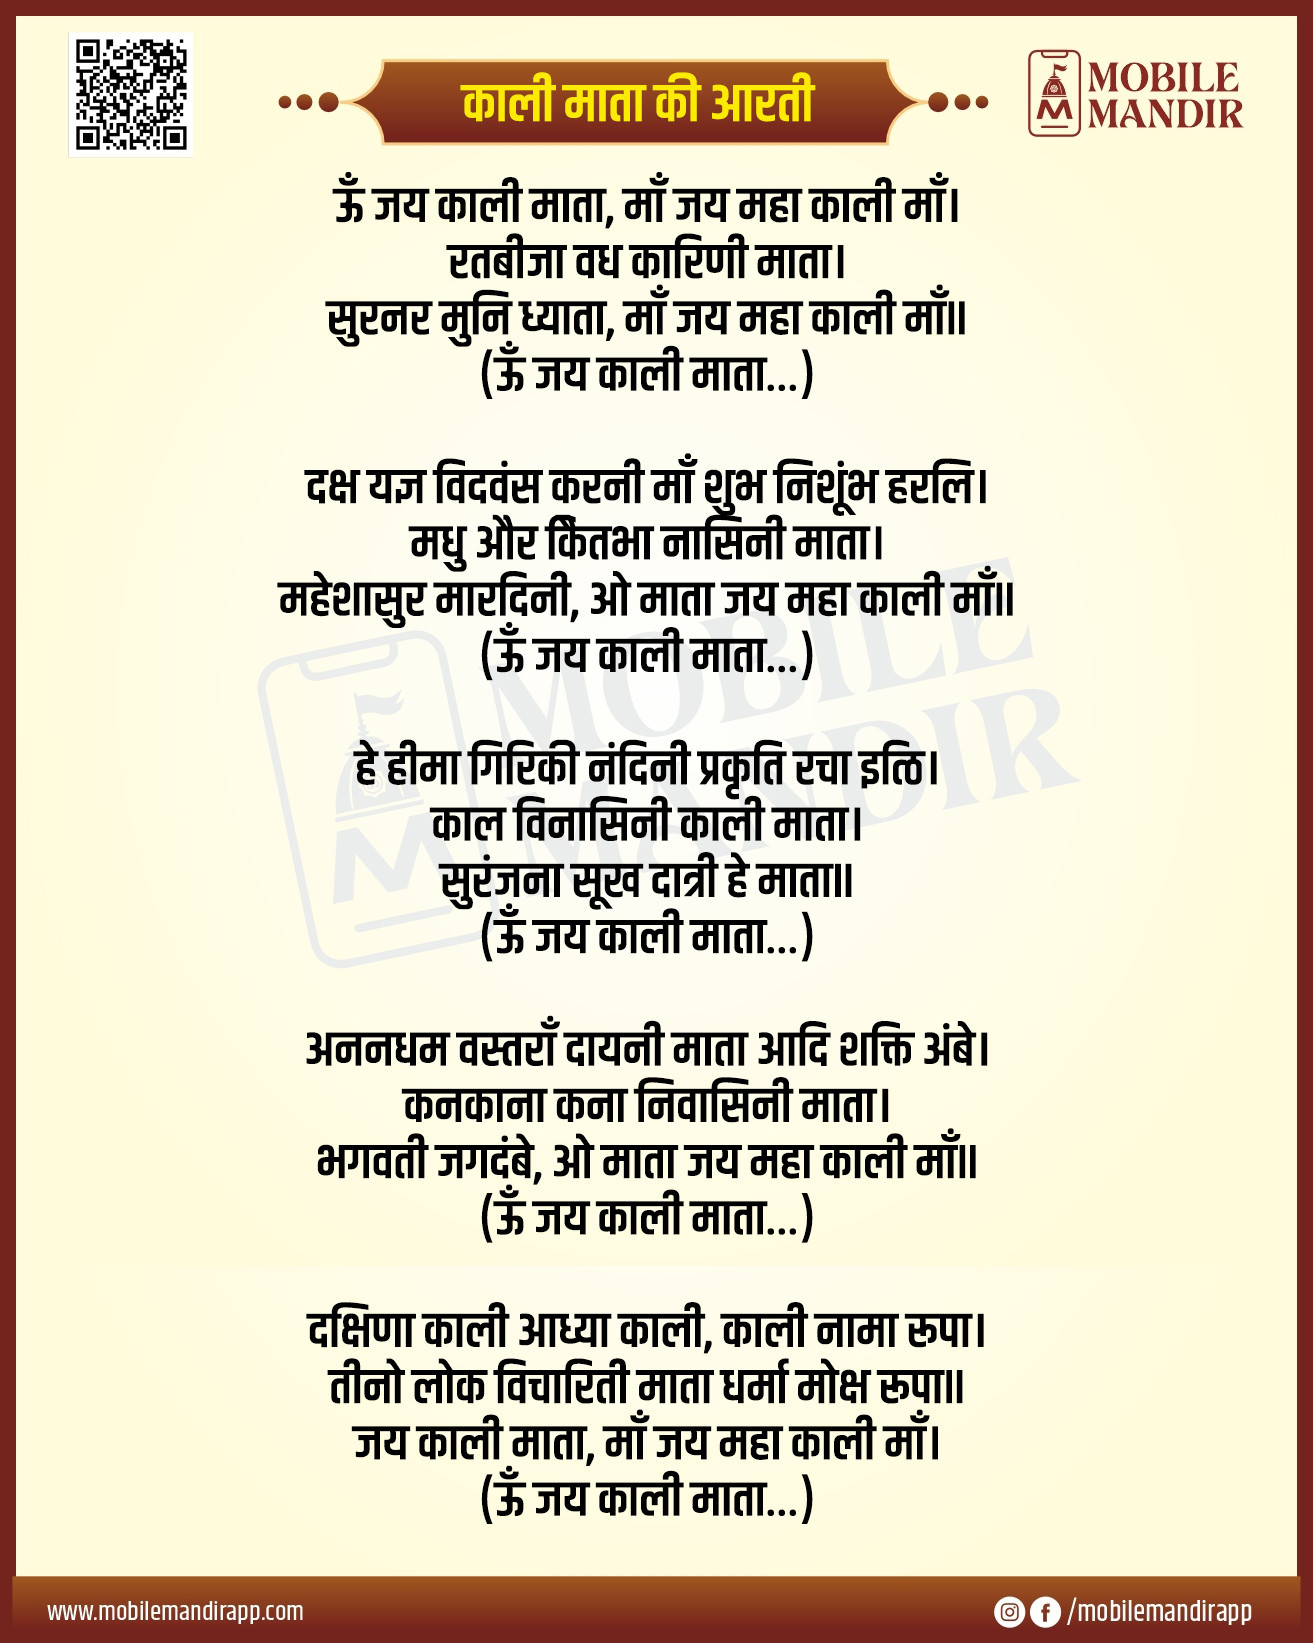 काली माता की आरती
MOBILE
MANDIR
ऊँ जय काली माता, माँ जय महा काली माँ।
रतबीजा वध कारिणी माता।
सुरनर मुनि ध्याता, माँ जय महा काली माँ॥
(ऊँ जय काली माता...)
दक्ष यज्ञ विदवंस करनी माँ शुभ निशूंभ हरलि।
मधु और कितभा नासिनी माता।
महेशासुर मारदिनी, ओ माता जय महा काली माँ॥
(ऊँ जय काली माता...)
हे हीमा गिरिकी नंदिनी प्रकृति रचा इत्ठि।
काल विनासिनी काली माता।
सुरंजना सूख दात्री हे माता॥
(ऊँ जय काली माता...)
अननधम वस्तराँ दायनी माता आदि शक्ति अंबे।
कनकाना कना निवासिनी माता।
भगवती जगदंबे, ओ माता जय महा काली माँ॥
(ऊँ जय काली माता...)
दक्षिणा काली आध्या काली, काली नामा रूपा।
तीनो लोक विचारिती माता धर्मा मोक्ष रूपा॥
जय काली माता, माँ जय महा काली माँ।
(ऊँ जय काली माता...)
MOBILE
MANDIR
www.mobilemandirapp.com
/mobilemandirapp